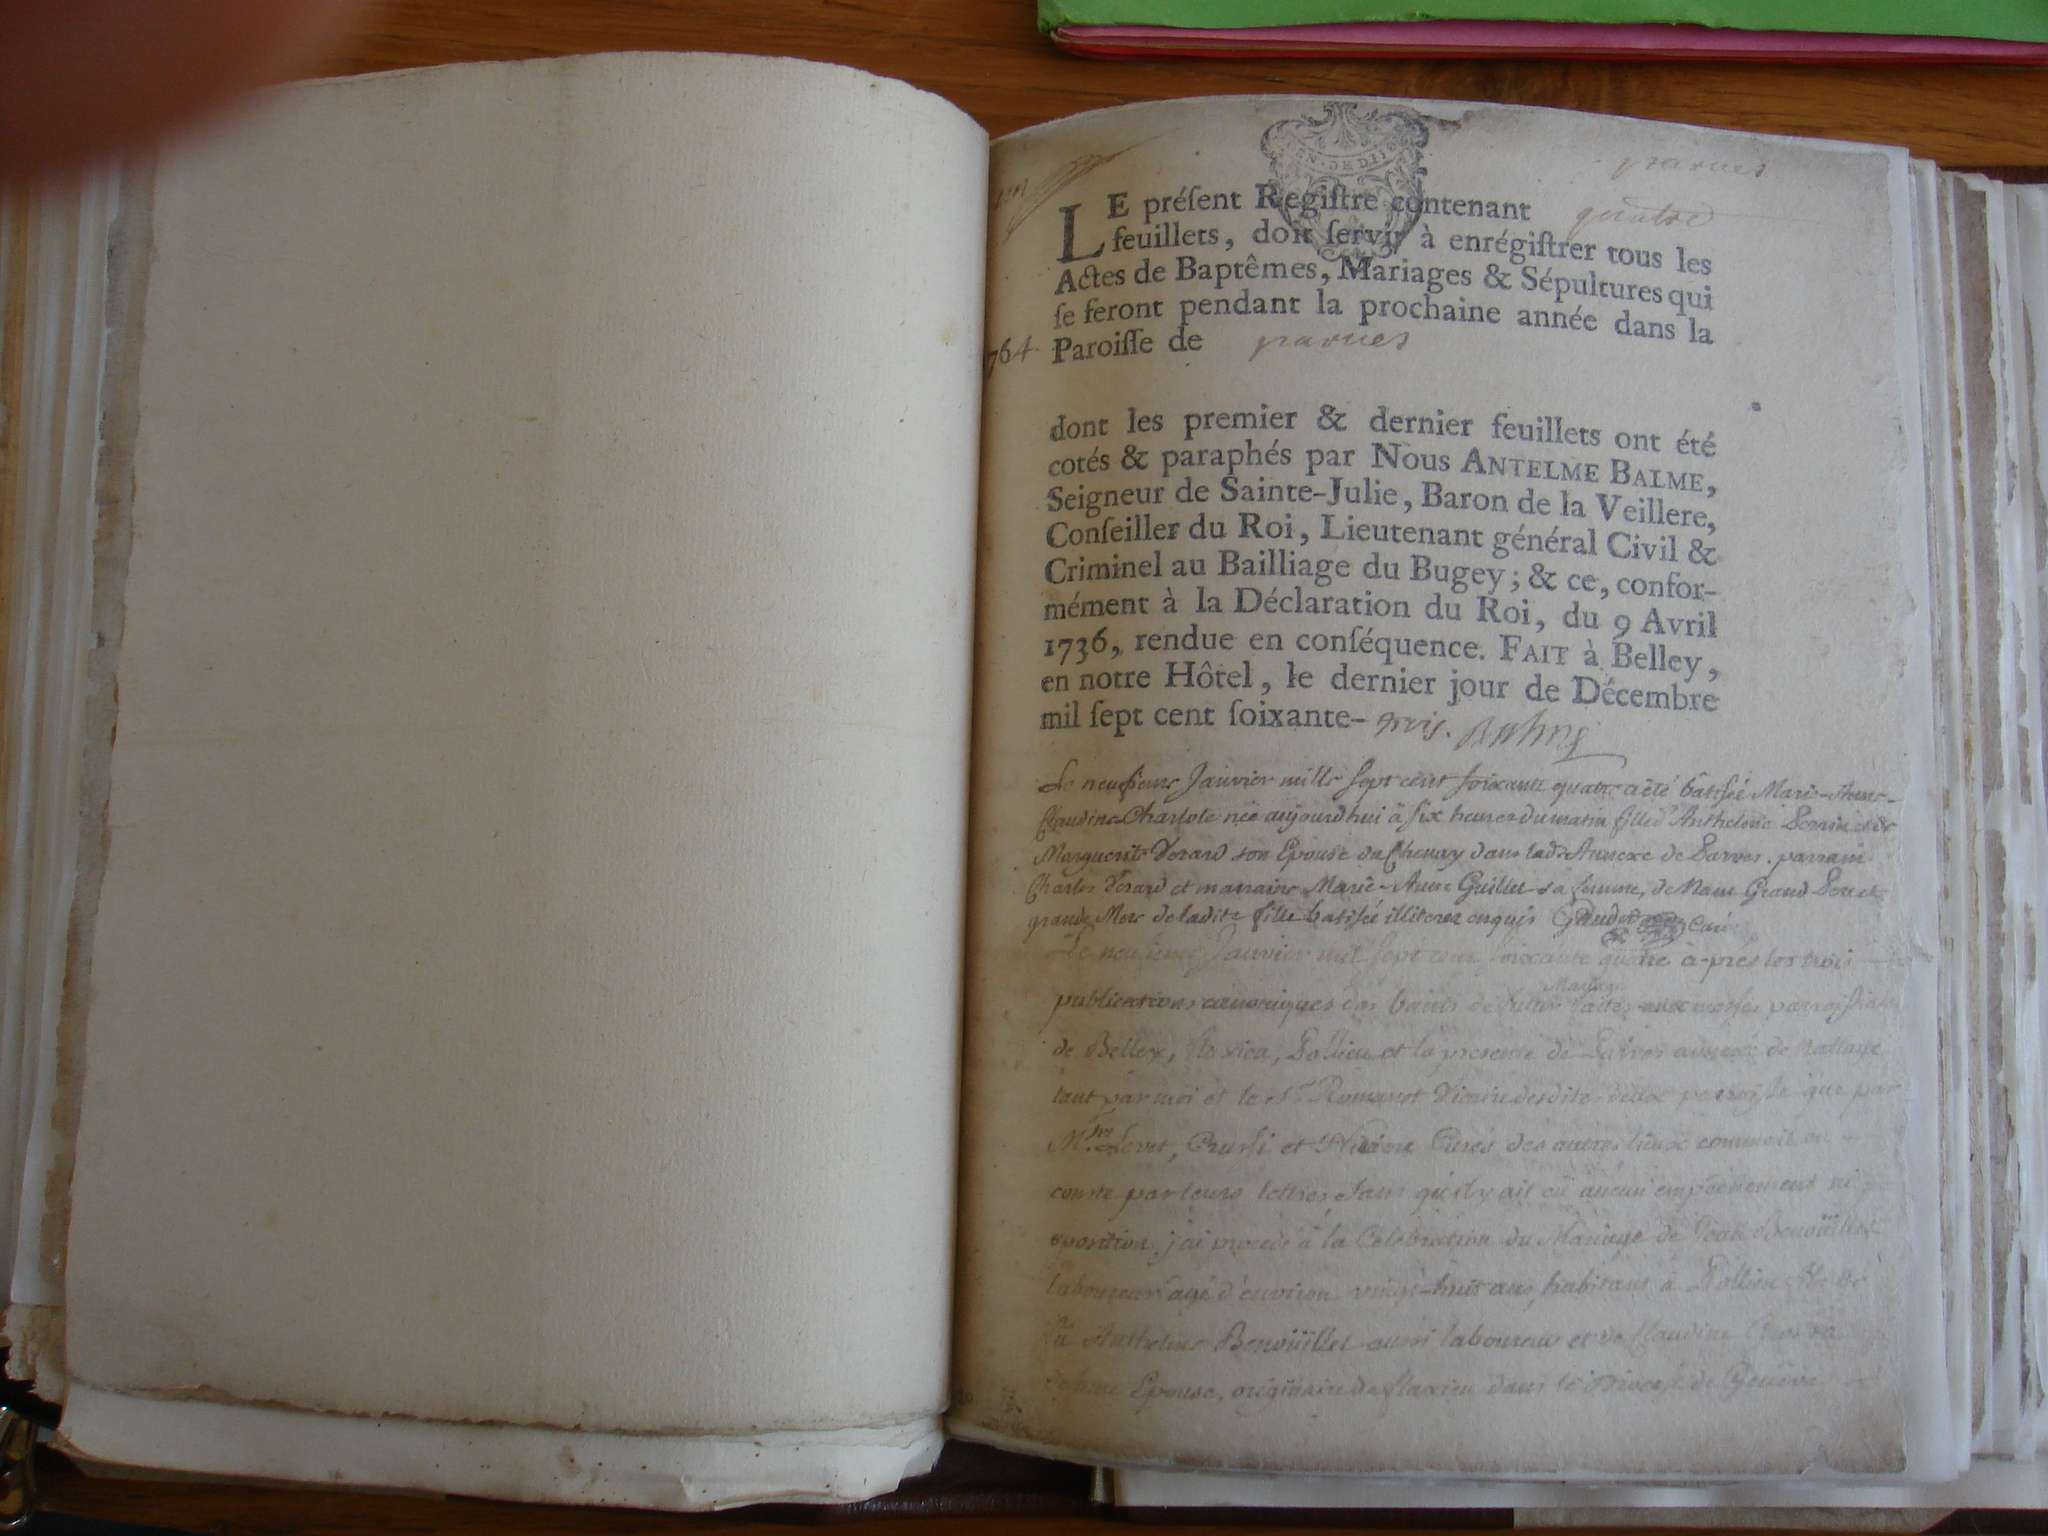 parves
LE préſent Regiſtre contenant quatre
feuillets, doit ſervir à enrégiſtrer tous les
Actes de Baptêmes, Mariages & Sépultures qui
ſe feront pendant la prochaine année dans la
1764 Paroiſſe de parves
dont les premier & dernier feuillets ont été
cotés & paraphés par Nous ANTELME BALME,
Seigneur de Sainte-Julie, Baron de la Veillere,
Conſeiller du Roi, Lieutenant général Civil &
Criminel au Bailliage du Bugey; & ce, confor-
mément à la Déclaration du Roi, du 9 Avril
1736, rendue en conſéquence. FAIT à Belley,
en notre Hôtel, le dernier jour de Décembre
mil ſept cent ſoixante- trois. Balme
Le neufieme Janvier mille sept cent soixante quatre a été batisée Marie-Anne-
Claudine-Charlote née aujourdhui à six heures du matin fille d'Anthelme et de
Marguerite son Epouse du dans lad. Annexe de Parves. parrain
Charles et marraine Marie-Anne Guillet sa femme, Grand Pere et
grande Mere de ladite fille batisée illiteres enquis
Le neufieme Janvier mil sept cent soixante quatre à-pres les trois
publications canoniques des bants de futur Mariage faites aux messes
de Belley, Pollieu et la presente de Parves annexe de Nattage
tant par moi et le Sr. Romanet Vicaire desdites que par
Mrs. et Curés des autres lieux comme il
conste par leurs lettres sans qu'il y ait eû aucun empechement ni
oposition, j'ai procedé à la Celebration du Mariage de
laboureur agé d'environ vingt-huit ans, habitant à Pollieu fils de
Anthelme aussi laboureur et de Claudine
Epouse, originaire de dans le Diocese de Geneve